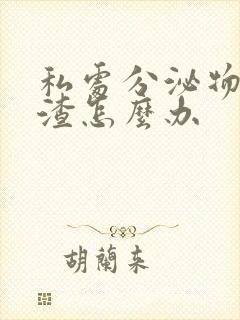 私處分泌物
渣怎麼办
胡蘭來